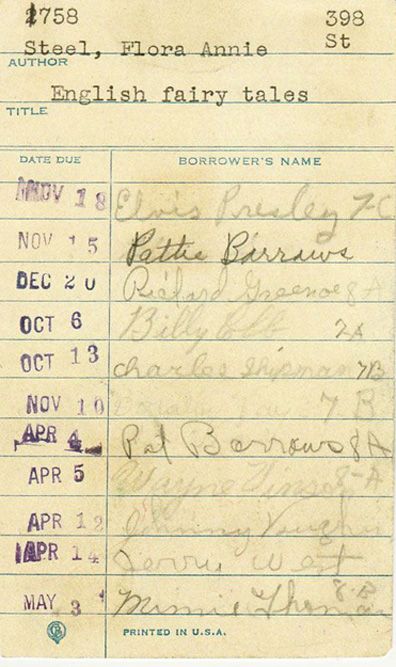 2758 398
St
Steel, Flora Annie
AUTHOR
English fairy tales
TITLE
DATE DUE BORROWER'S NAME
NOV 18 Elvis Presley 7-C
NOV 15 Pattie Barrows
DEC 20 Richard Greenoe 8A
OCT 6 Billy 7A
OCT 13 Charles Shipman 7B
NOV 10 7 B
APR 4 Pat Barrows 8A
APR 5 Wayne 8-A
APR 12 Jimmy Vaughn
APR 14 Jerry West
8-B
MAY 3 Minnie Thomas
PRINTED IN U.S.A.